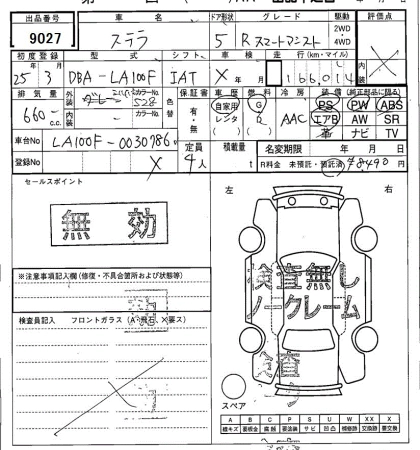 出品番号 車名 ドア形状 グレード 駆動 評価点
9027 ステラ 5 Rスマートアシスト 2WD・4WD
初度登録 型式 シフト 車検 走行(km・マイル) 内装
25年3月 DBA-LA100F IAT X年 月 166,014
排気量 外装 カラーNo. 色替 保証書 車歴 燃料 冷房 装備(純正部品に限る)
660 c.c. グレー 528 有・無 自家用 レンタ G D AAC PS PW ABS
内装 カラーNo. エアB AW SR
革 ナビ TV
車台No LA100F-0030786 定員 積載量 名変期限 年 月 日
登録No X 4人 t R料金 未預託・預託済 78490円
セールスポイント
無効
左 右
検査無し
ノークレーム
※注意事項記入欄(修復・不具合箇所および状態等)
検査員記入 フロントガラス(A・飛石、X要ス)
検査
スペア
A B C P S U W X XX X
線キズ 要板金 腐蝕 要塗装 サビ 凹凸 補修跡 交換跡 要交換